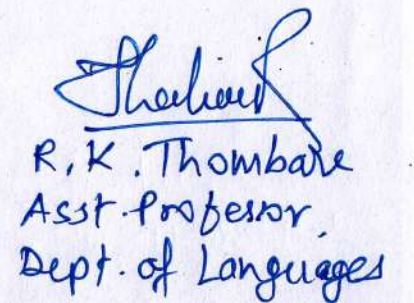 R. K. Thombare
Asst. Professor
Dept. of Languages